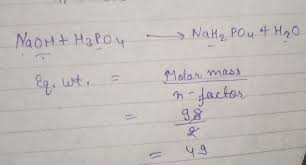 NaOH + H3PO4 → NaH2PO4 + H2O
Eq. wt. = Molar mass / n-factor
= 98 / 2
= 49